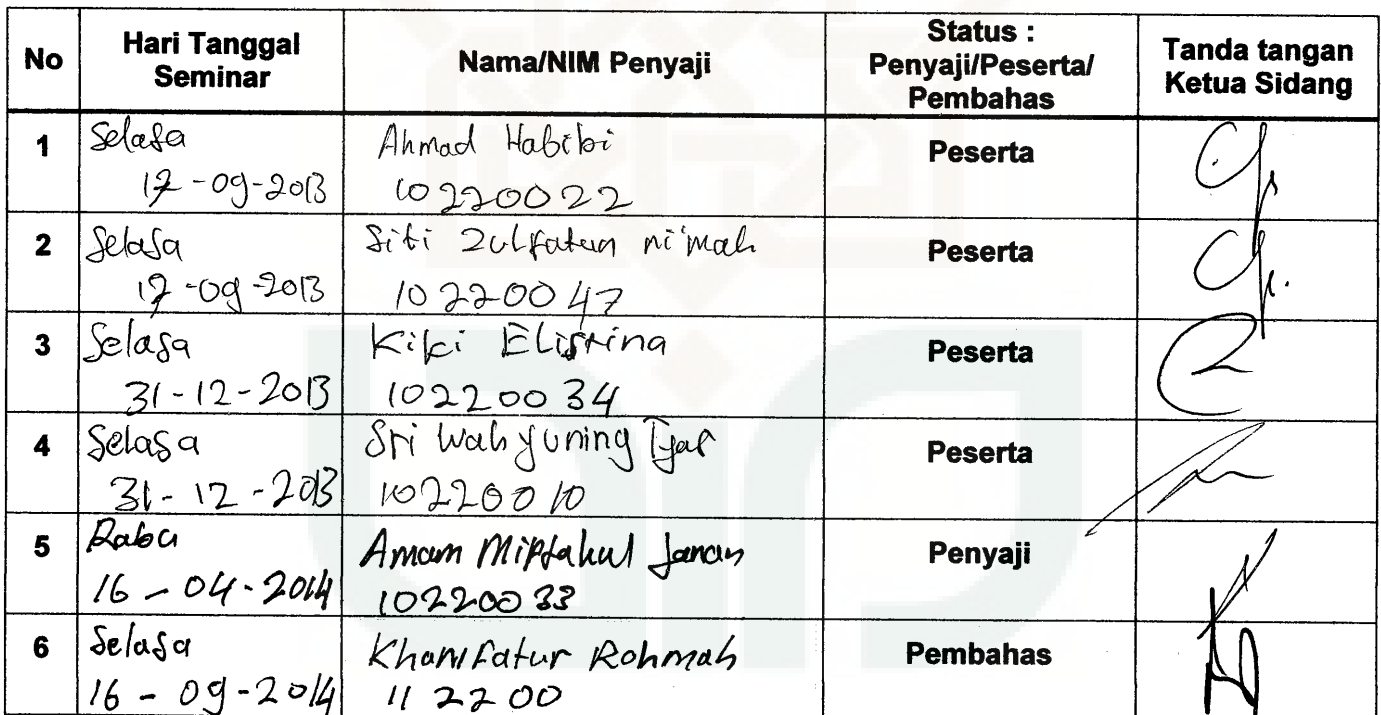 No
Hari Tanggal
Seminar
Nama/NIM Penyaji
Status :
Penyaji/Peserta/
Pembahas
Tanda tangan
Ketua Sidang
1
Selasa
17-09-2013
Ahmad Habibi
10220022
Peserta
2
Selasa
17-09-2013
Siti Zulfatun ni'mah
10220047
Peserta
3
Selasa
31-12-2013
Kiki Elisrina
10220034
Peserta
4
Selasa
31-12-2013
Sri Wahyuning
10220010
Peserta
5
Rabu
16-04-2014
Amam Miftahul Janan
10220033
Penyaji
6
Selasa
16-09-2014
Khanifatur Rohmah
112200
Pembahas